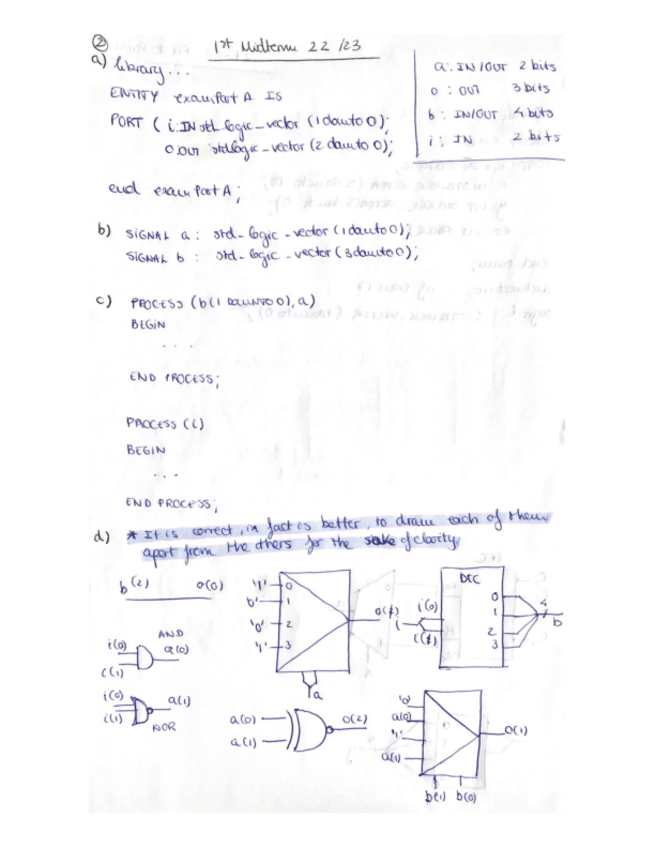 ②
1st Midterm 22/23
a) library...
ENTITY examPart A IS
PORT ( i: IN std_logic_vector (1 downto 0);
o: OUT std_logic_vector (2 downto 0);
end exam Part A;
a: IN/OUT 2 bits
o : OUT 3 bits
b : IN/OUT 4 bits
i : IN 2 bits
b) SIGNAL a : std_logic_vector (1 downto 0);
SIGNAL b : std_logic_vector (3 downto 0);
c) PROCESS (b(1 downto 0), a)
BEGIN
...
END PROCESS;
PROCESS (i)
BEGIN
...
END PROCESS;
d) * It is correct, in fact is better, to draw each of them
apart from the others for the sake of clarity
b(2) o(0)
'1' 0
1
'0' 2
'1' 3
a
DEC
i(0)
i
0
1
2
3
4
b
i(0)
i(1)
AND
a(0)
i(0)
i(1)
a(1)
NOR
a(0)
a(1)
o(2)
'0'
a(0)
'1'
a(1)
o(1)
b(1) b(0)